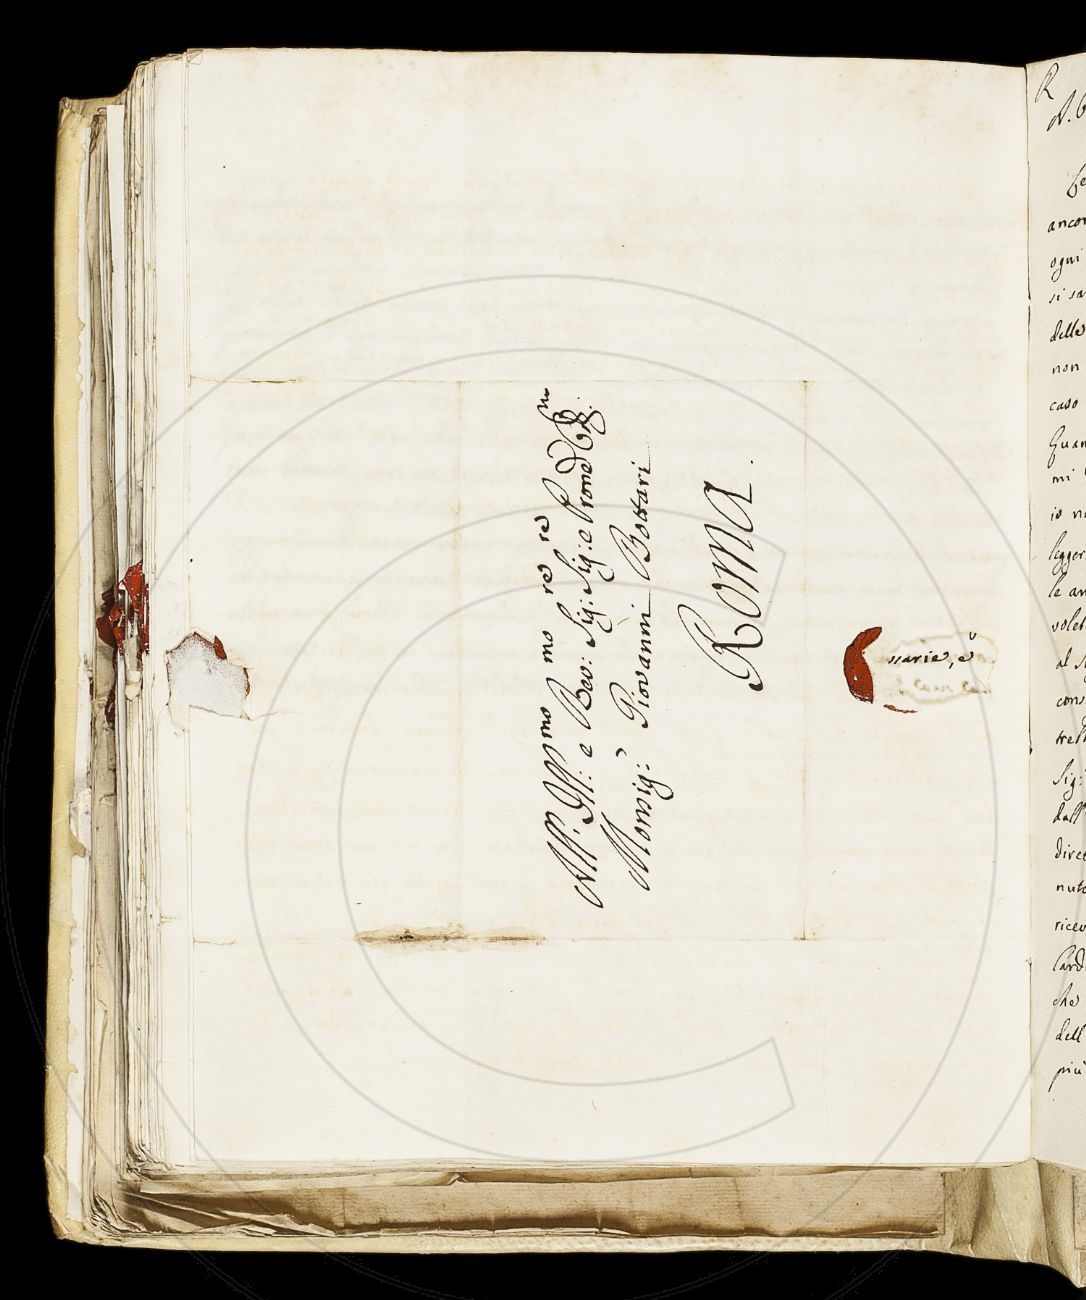 All' Ill:mo e Rev:mo Sig:re Sig:re e Prone Col:mo
Monsig:r Giovanni Bottari
Roma.
ssarie, è
R
ancor
ogni
si sa
delle
non
caso
Quan
mi
io n
legger
le an
volet
al S
cons
trelt
Sig:
dall'
diret
nuto
ricev
Card
che
dell
più